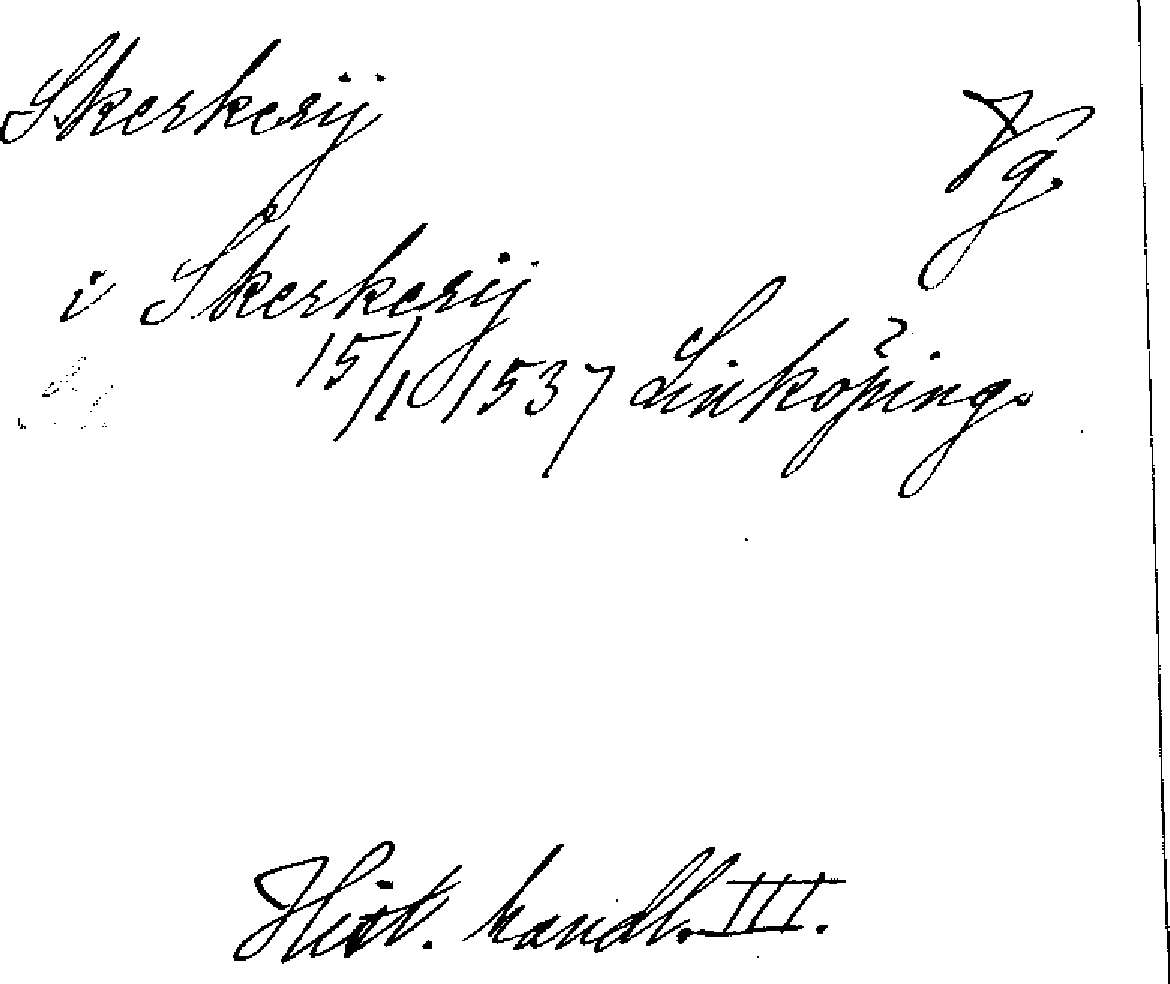 Skerkerij
Vg.
i Skerkerij
15/1 1537 Linköping.
Hist. handl. III.